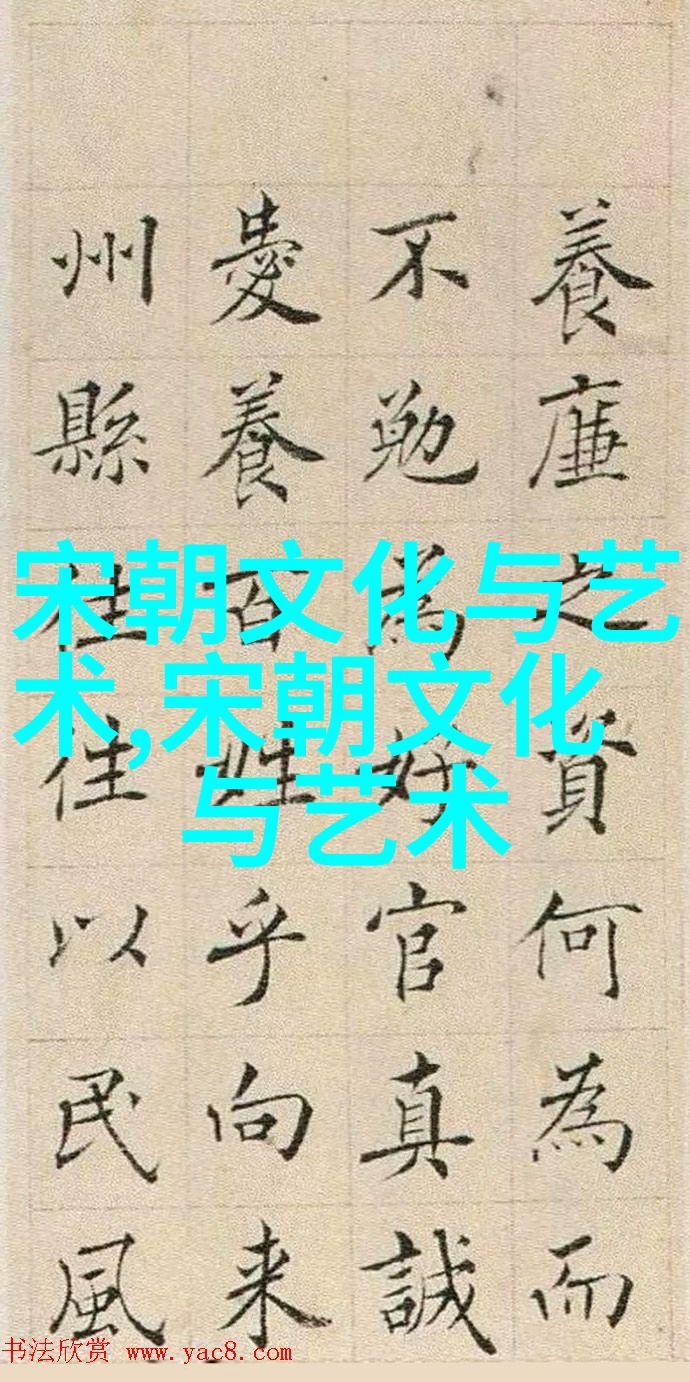 養廉之資何為而
不勉為好官真誠
愛養百姓乎向来
州縣往往以民風
宋朝文化与艺
术,宋朝文化
与艺术
书法欣赏 www.yac8.com